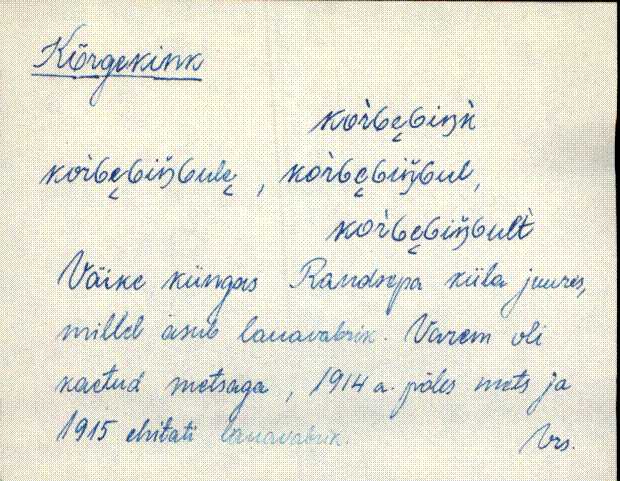 Kõrgekink
kòrɢe̬ɢiŋ̀k
kòrɢe̬ɢiŋ̆ɢule̬, kòrɢe̬ɢiŋ̆ɢul,
kòrɢe̬ɢiŋ̆ɢult̀
Väike küngas Randsepa küla juures,
millel asub lauavabrik. Varem oli
kaetud metsaga, 1914 a. põles mets ja
1915 ehitati lauavabrik.
Vrs.